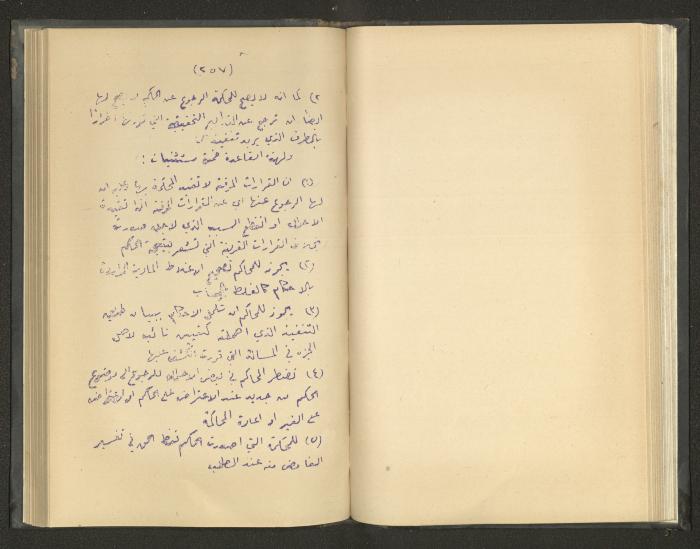 (٢٥٧)
٢) كما انه لا يصح للمحكمة الرجوع عن الحكم لا يصح لها
ايضا ان ترجع عن التدابير التحقيقية التي قررتها
بالطرف الذي يريد تنفيذه
ولهذه القاعدة خمسة مستثنيات :
(١) ان القرارات المؤقتة لا تقيد المحكمة بها
لها الرجوع عنها اي عن القرارات المؤقتة اذا تغيرت
الاحوال او انقطع السبب الذي لاجله صدرت
بخلاف القرارات القرينة التي تشعر بنتيجة الحكم
(٢) يجوز للمحاكم تصحيح الاغلاط المادية
بالاحكام كالغلط بالحساب
(٣) يجوز للمحاكم ان تكمل الاحكام ببيان طريق
التنفيذ الذي اهملته كتعيين نائب لاجل
في المسألة التي قررت الكشف عليها
(٤) تضطر المحاكم في بعض الاحوال للرجوع الى موضوع
الحكم من جديد عند الاعتراض على الحكم او اعتراض
الغير او اعادة المحاكمة
(٥) للمحكمة التي اصدرت الحكم فقط الحق في تفسير
الغامض منه عند الطلب